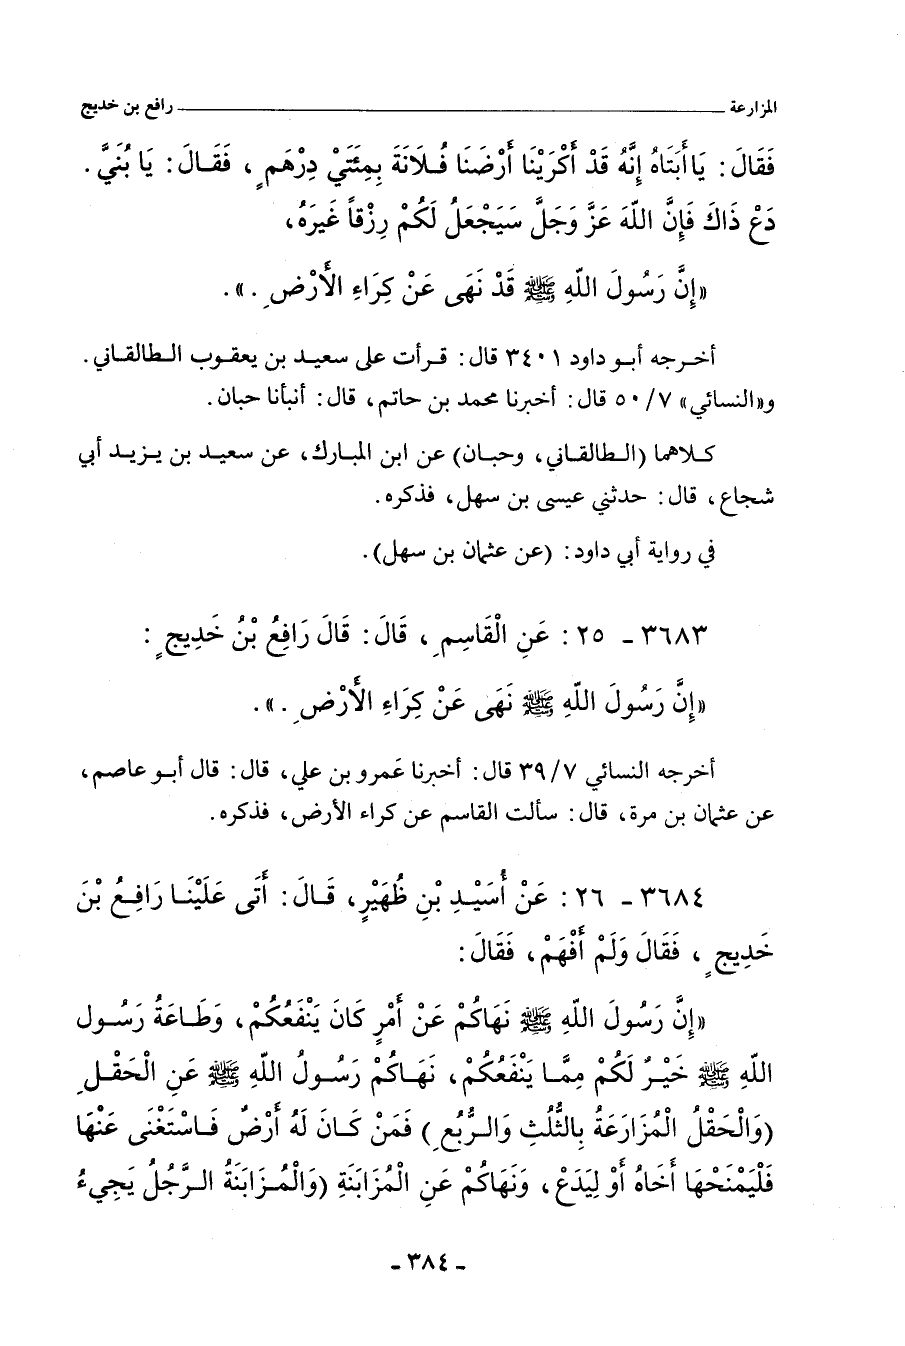 المزارعة ــــــــ رافع بن خديج
فَقَالَ: يَا أَبَتَاهُ إِنَّهُ قَدْ أَكْرَيْنَا أَرْضَنَا فُلَانَةَ بِمِئَتَيْ دِرْهَمٍ، فَقَالَ: يَا بُنَيَّ.
دَعْ ذَاكَ فَإِنَّ اللّهَ عَزَّ وَجَلَّ سَيَجْعَلُ لَكُمْ رِزْقاً غَيرَهُ،
«إِنَّ رَسُولَ اللّهِ ﷺ قَدْ نَهَى عَنْ كِرَاءِ الأَرْضِ.».
أخرجه أبو داود ٣٤٠١ قال: قرأت على سعيد بن يعقوب الطالقاني.
و«النسائي» ٥٠/٧ قال: أخبرنا محمد بن حاتم، قال: أنبأنا حبان.
كلاهما (الطالقاني، وحبان) عن ابن المبارك، عن سعيد بن يزيد أبي
شجاع، قال: حدثني عيسى بن سهل، فذكره.
في رواية أبي داود: (عن عثمان بن سهل).
٣٦٨٣ - ٢٥: عَنِ الْقَاسِمِ، قَالَ: قَالَ رَافِعُ بْنُ خَدِيجٍ:
«إِنَّ رَسُولَ اللّهِ ﷺ نَهَى عَنْ كِرَاءِ الأَرْضِ.».
أخرجه النسائي ٣٩/٧ قال: أخبرنا عَمرو بن علي، قال: قال أبو عاصم،
عن عثمان بن مرة، قال: سألت القاسم عن كراء الأرض، فذكره.
٣٦٨٤ - ٢٦: عَنْ أُسَيْدِ بْنِ ظُهَيْرٍ، قَالَ: أَتَى عَلَيْنَا رَافِعُ بْنَ
خَدِيجٍ، فَقَالَ وَلَمْ أَفْهَمْ، فَقَالَ:
«إِنَّ رَسُولَ اللّهِ ﷺ نَهَاكُمْ عَنْ أَمْرٍ كَانَ يَنْفَعُكُمْ، وَطَاعَةُ رَسُول
اللّهِ ﷺ خَيْرٌ لَكُمْ مِمَّا يَنْفَعُكُمْ، نَهَاكُمْ رَسُولُ اللّهِ ﷺ عَنِ الْحَقْلِ
(وَالْحَقْلُ الْمُزَارَعَةُ بِالثُّلُثِ وَالرُّبُعِ) فَمَنْ كَانَ لَهُ أَرْضٌ فَاسْتَغْنَى عَنْهَا
فَلْيَمْنَحْهَا أَخَاهُ أَوْ لِيَدَعْ، وَنَهَاكُمْ عَنِ الْمُزَابَنَةِ (وَالْمُزَابَنَةُ الرَّجُلُ يَجِيءُ
- ٣٨٤ -